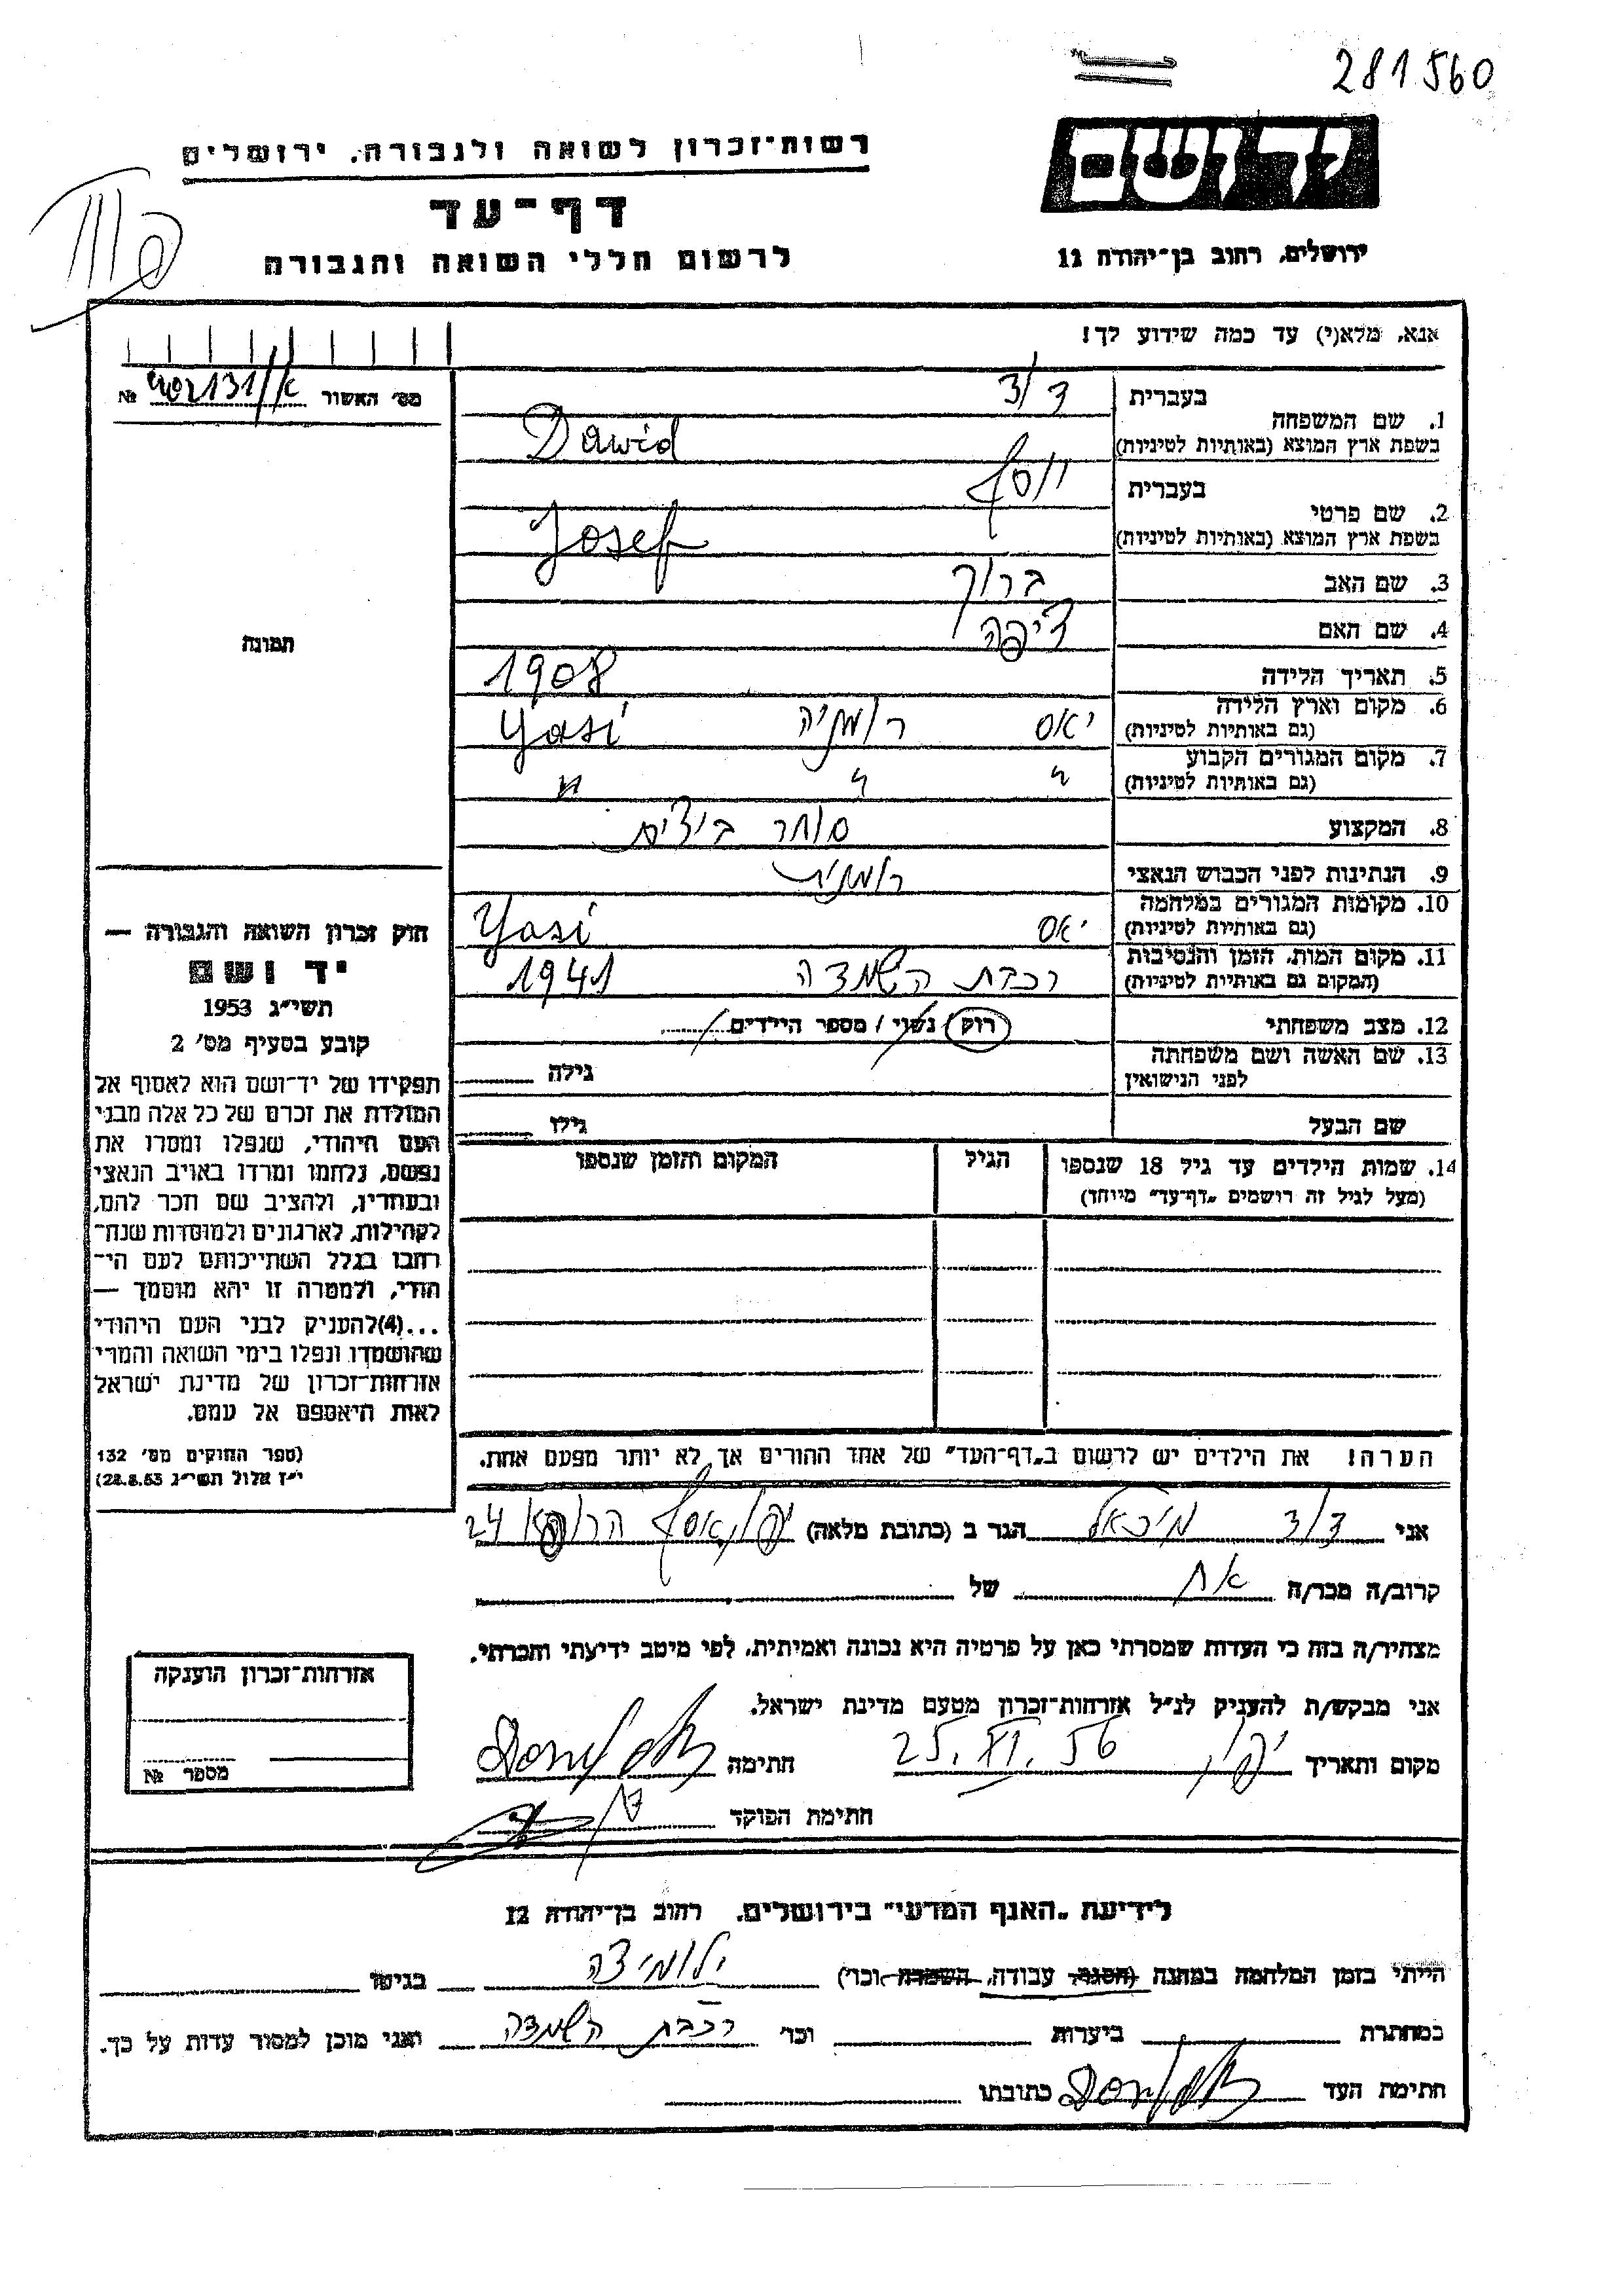 281560
יד ושם
רשות-זכרון לשואה ולגבורה, ירושלים
דף-עד
לרשום חללי השואה והגבורה
ירושלים, רחוב בן-יהודה 12
אנא, מלא(י) עד כמה שידוע לך!
מס׳ האשור № 402131/א
1. שם המשפחה בעברית דוד
בשפת ארץ המוצא (באותיות לטיניות) Dawid
2. שם פרטי בעברית יוסף
בשפת ארץ המוצא (באותיות לטיניות) Josef
3. שם האב ברוך
4. שם האם ציפה
5. תאריך הלידה 1908
6. מקום וארץ הלידה (גם באותיות לטיניות) יאס רומניה Yasi
7. מקום המגורים הקבוע (גם באותיות לטיניות) " " "
8. המקצוע סוחר ביצים
9. הנתינות לפני הכבוש הנאצי רומנית
10. מקומות המגורים במלחמה (גם באותיות לטיניות) יאס Yasi
11. מקום המות, הזמן והנסיבות (המקום גם באותיות לטיניות) רכבת השמדה 1941
12. מצב משפחתי רוק / נשוי / מספר הילדים
13. שם האשה ושם משפחתה לפני הנישואין גילה
שם הבעל גילו
14. שמות הילדים עד גיל 18 שנספו (מעל לגיל זה רושמים „דף-עד" מיוחד) הגיל המקום והזמן שנספו
הערה! את הילדים יש לרשום ב„דף-העד" של אחד ההורים אך לא יותר מפעם אחת.
תמונה
חוק זכרון השואה והגבורה —
יד ושם
תשי״ג 1953
קובע בסעיף מס׳ 2
תפקידו של יד-ושם הוא לאסוף אל
המולדת את זכרם של כל אלה מבני
העם היהודי, שנפלו ומסרו את
נפשם, נלחמו ומרדו באויב הנאצי
ובעוזריו, ולהציב שם וזכר להם,
לקהילות, לארגונים ולמוסדות שנח-
רבו בגלל השתייכותם לעם הי-
הודי, ולמטרה זו יהא מוסמך —
...(4) להעניק לבני העם היהודי
שהושמדו ונפלו בימי השואה והמרי
אזרחות-זכרון של מדינת ישראל
לאות היאספם אל עמם.
(ספר החוקים מס׳ 132
י״ז אלול תשי״ג 28.8.53)
אני דוד מיכאל הגר ב (כתובת מלאה) יפו, אסף הרופא 24
קרוב/ה מכר/ה אח של
מצהיר/ה בזה כי העדות שמסרתי כאן על פרטיה היא נכונה ואמיתית, לפי מיטב ידיעתי והכרתי.
אני מבקש/ת להעניק לנ״ל אזרחות-זכרון מטעם מדינת ישראל.
מקום ותאריך יפו, 25. XI. 56 חתימה
חתימת הפוקד
אזרחות-זכרון הוענקה
מספר №
לידיעת „האגף המדעי" בירושלים, רחוב בן-יהודה 12
הייתי בזמן המלחמה במחנה (הסגר, עבודה, השמדה וכו׳) ילומיצה בגיטו
במחתרת ביערות וכו׳ רכבת השמדה ואני מוכן למסור עדות על כך.
חתימת העד כתובתו